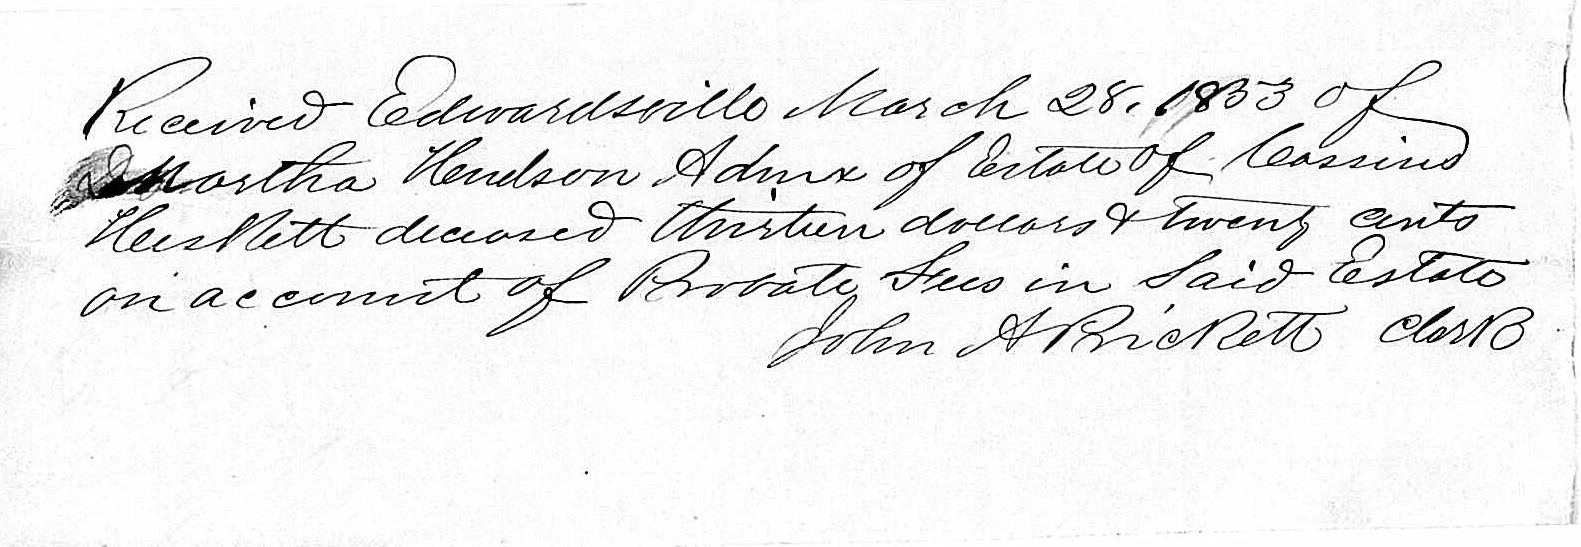 Received Edwardsville March 28. 1853 of
Martha Hudson Admx of Estate of Cassius
Heskett deceased thirteen dollars & twenty cents
on account of Probate Fees in Said Estate
John A Prickett Clerk